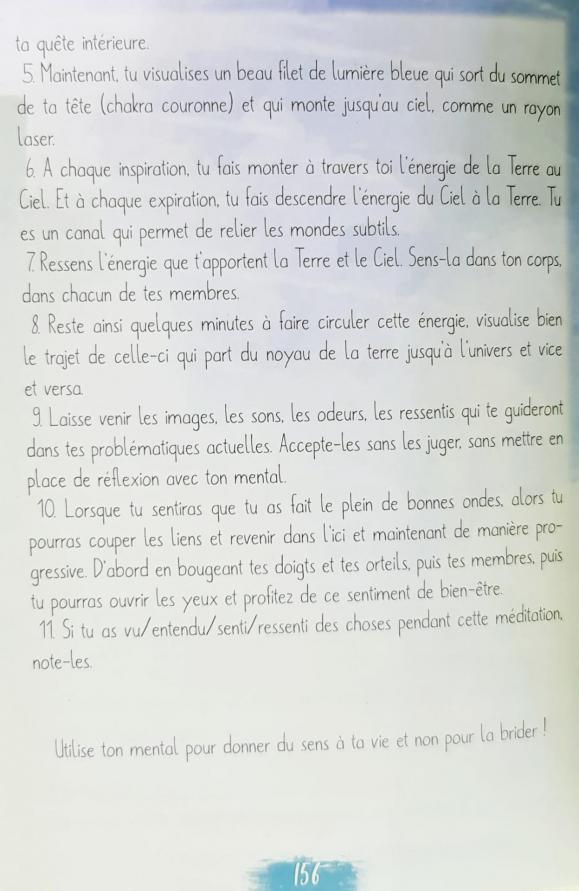 ta quête intérieure.
5. Maintenant, tu visualises un beau filet de lumière bleue qui sort du sommet
de ta tête (chakra couronne) et qui monte jusqu'au ciel, comme un rayon
laser.
6. A chaque inspiration, tu fais monter à travers toi l'énergie de la Terre au
Ciel. Et à chaque expiration, tu fais descendre l'énergie du Ciel à la Terre. Tu
es un canal qui permet de relier les mondes subtils.
7. Ressens l'énergie que t'apportent la Terre et le Ciel. Sens-la dans ton corps,
dans chacun de tes membres.
8. Reste ainsi quelques minutes à faire circuler cette énergie, visualise bien
le trajet de celle-ci qui part du noyau de la terre jusqu'à l'univers et vice
et versa.
9. Laisse venir les images, les sons, les odeurs, les ressentis qui te guideront
dans tes problématiques actuelles. Accepte-les sans les juger, sans mettre en
place de réflexion avec ton mental.
10. Lorsque tu sentiras que tu as fait le plein de bonnes ondes, alors tu
pourras couper les liens et revenir dans l'ici et maintenant de manière pro-
gressive. D'abord en bougeant tes doigts et tes orteils, puis tes membres, puis
tu pourras ouvrir les yeux et profitez de ce sentiment de bien-être.
11. Si tu as vu/entendu/senti/ressenti des choses pendant cette méditation,
note-les.
Utilise ton mental pour donner du sens à ta vie et non pour la brider !
156